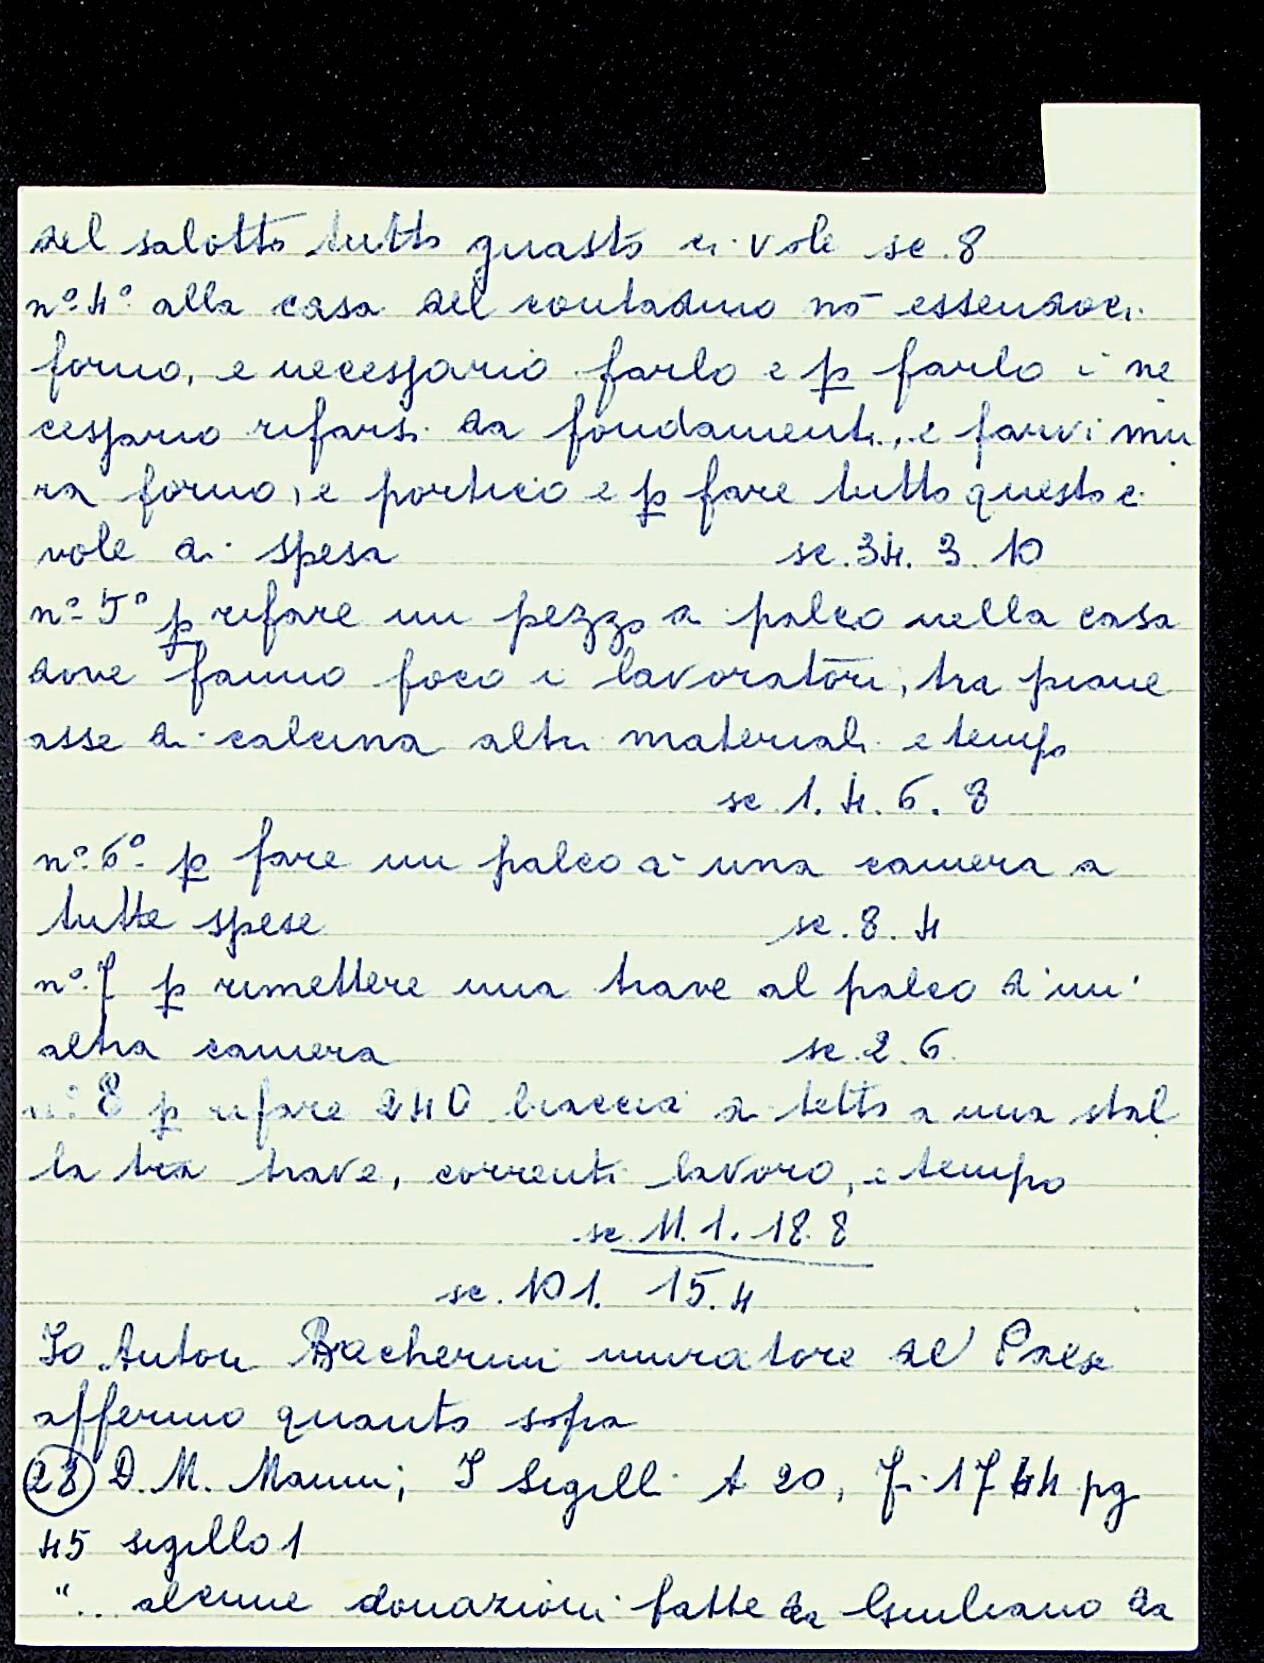 del salotto tutto guasto ci vole sc. 8
n° 4° alla casa del contadino nō essendoci
forno, e necessario farlo e p farlo è ne
cessario rifarsi da fondamenti, e farvi mu
ra forno, e portico e p fare tutto questo c
vole di spesa sc. 34. 3. 10
n° 5° p rifare un pezzo di palco nella casa
dove fanno foco i lavoratori, tra piane
asse di calcina altri materiali e tempo
sc. 1. 4. 6. 8
n° 6° p fare un palco a una camera a
tutte spese sc. 8. 4
n° 7 p rimettere una trave al palco d'un'
altra camera sc. 2. 6.
n° 8 p rifare 240 braccia di tetto a una stal
la tra trave, correnti lavoro, e tempo
sc. 11. 1. 18. 8
sc. 101. 15. 4
Io Anton Bacherini muratore del Paese
affermo quanto sopra
(28) D. M. Manni; I Sigilli t 20, Fi 1744 pg
45 sigillo 1
"... alcune donazioni fatte da Giuliano da